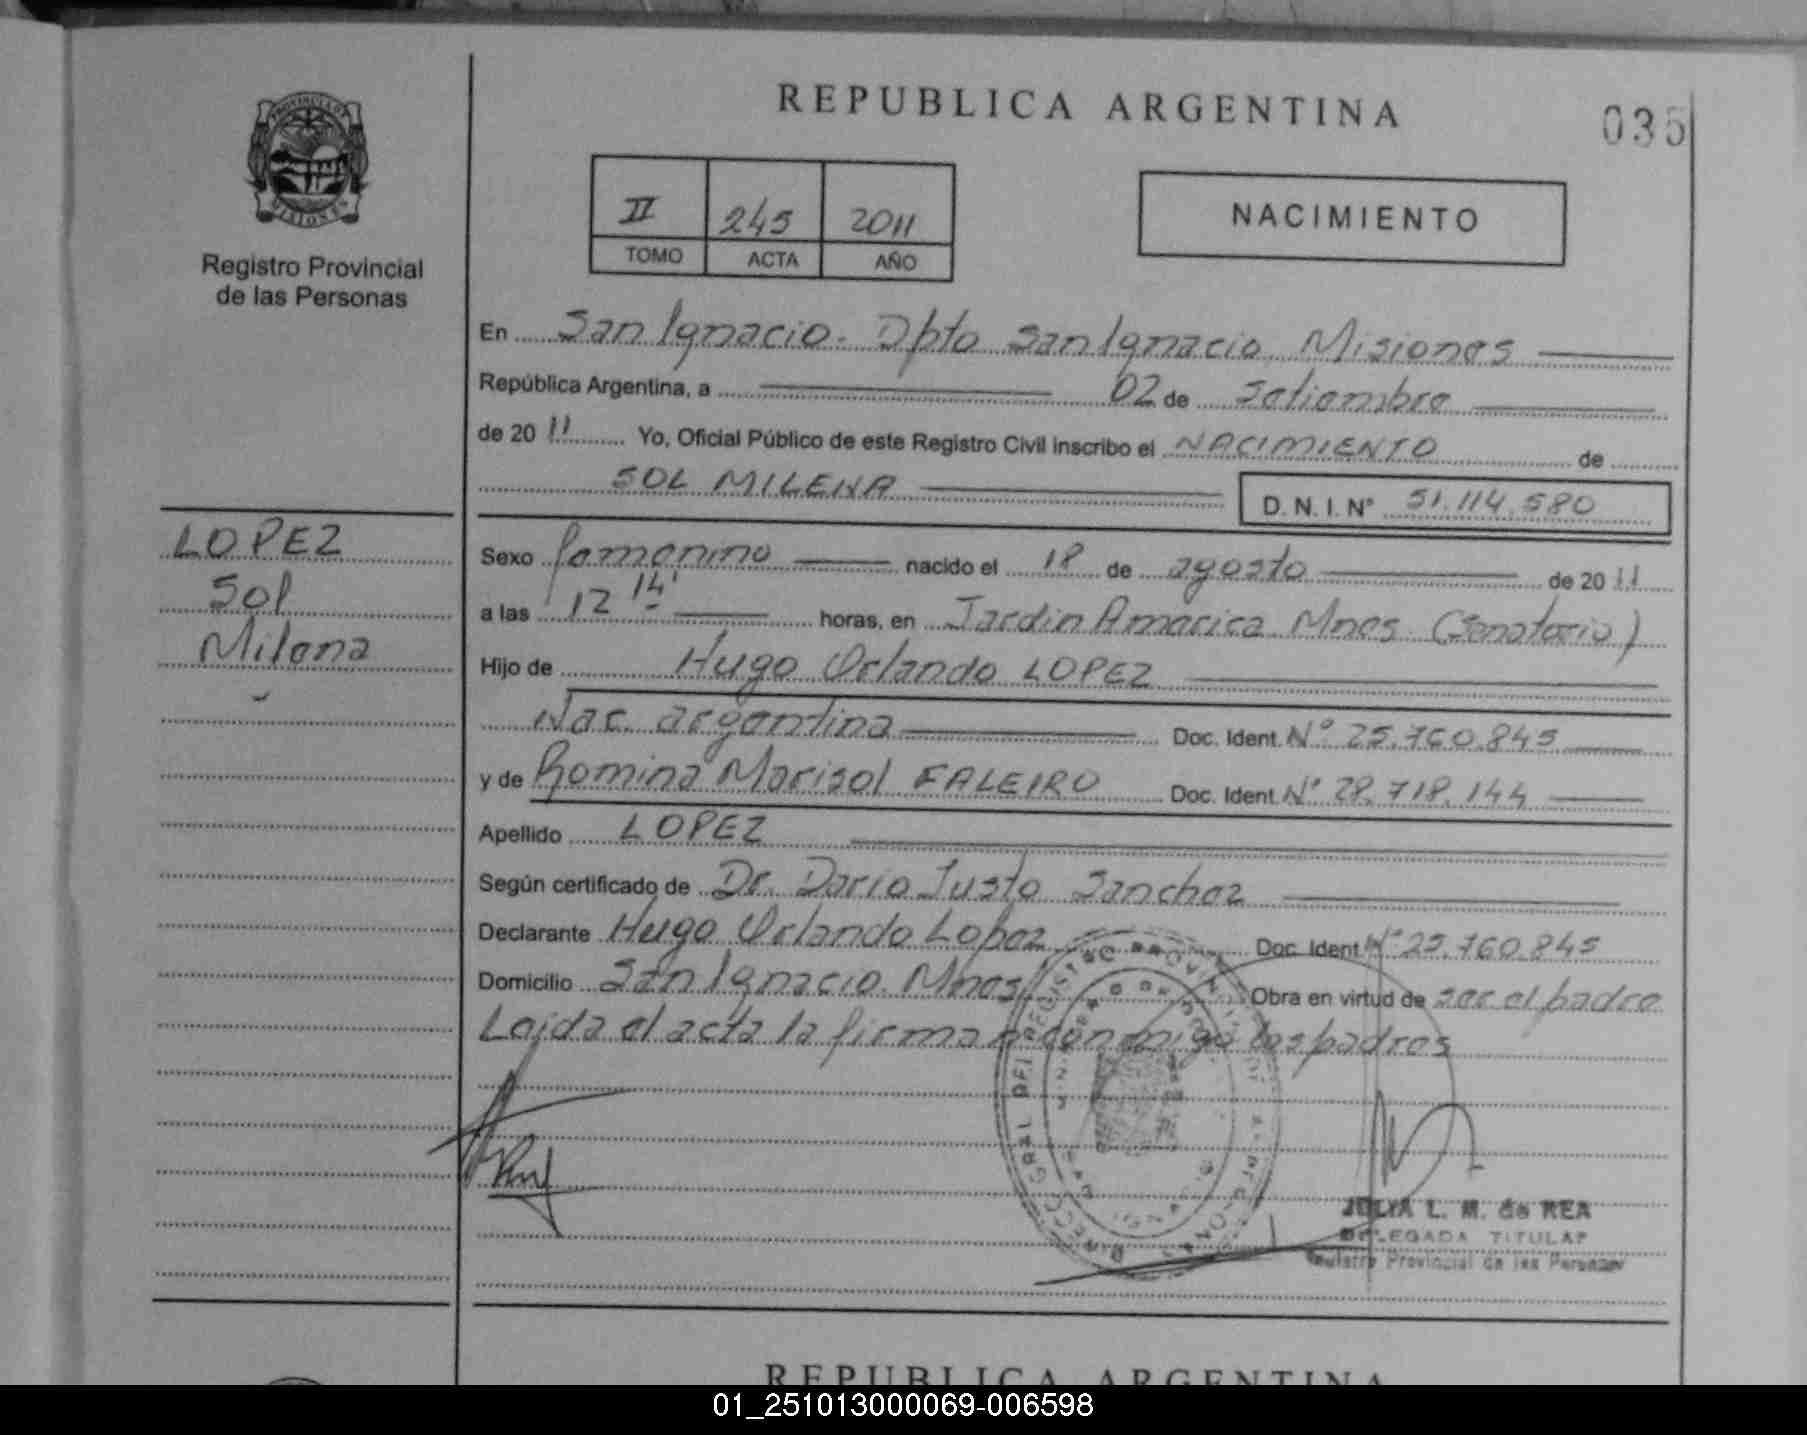 REPUBLICA ARGENTINA
035
PROVINCIA DE
MISIONES
Registro Provincial
de las Personas
II 245 2011
TOMO ACTA AÑO
NACIMIENTO
En San Ignacio. Dpto San Ignacio, Misiones
República Argentina, a 02 de Setiembre
de 20 11 Yo, Oficial Público de este Registro Civil inscribo el NACIMIENTO de
SOL MILENA D.N.I. N° 51.114.580
LOPEZ
Sol
Milena
Sexo femenino nacido el 18 de agosto de 20 11
a las 12 14' horas, en Jardin America Mnes (Sanatorio)
Hijo de Hugo Orlando LOPEZ
Nac. argentina Doc. Ident. N° 25.760.845
y de Romina Marisol FALEIRO Doc. Ident. N° 28.718.144
Apellido LOPEZ
Según certificado de Dr. Dario Justo Sanchez
Declarante Hugo Orlando Lopez Doc. Ident. N° 25.760.845
Domicilio San Ignacio. Mnes Obra en virtud de ser el padre
Leida el acta la firman conmigo los padres
JULIA L. M. de REA
DELEGADA TITULAR
Registro Provincial de las Personas
REPUBLICA ARGENTINA
01_251013000069-006598